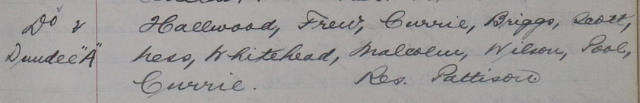 Do v Hallwood, Frew, Currie, Briggs, Scott,
Dundee "A" Ness, Whitehead, Malcolm, Wilson, Pool,
Currie. Res. Pattison